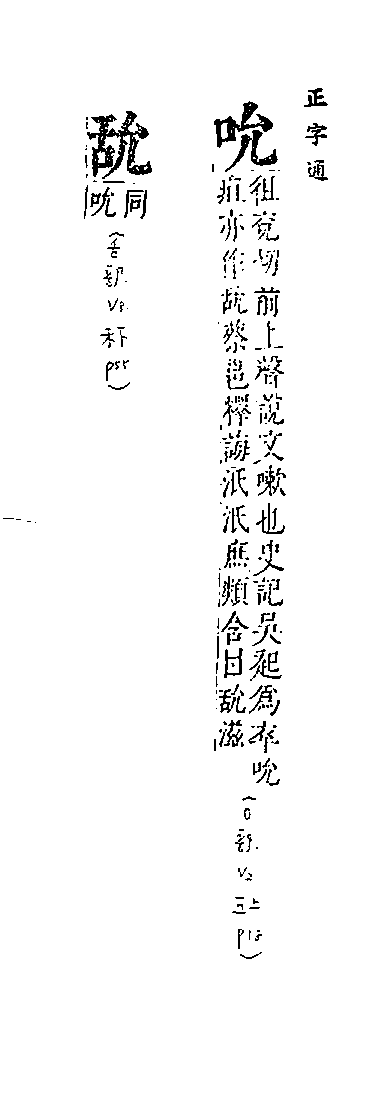 正字通
吮
徂兗切前上聲說文嗽也史記吳起爲卒吮
疽亦作蔡邕釋誨泜泜庶類含甘滋
(口部. V2 丑上 p18)
同
吮
(舌部. V8. 未下 p55)